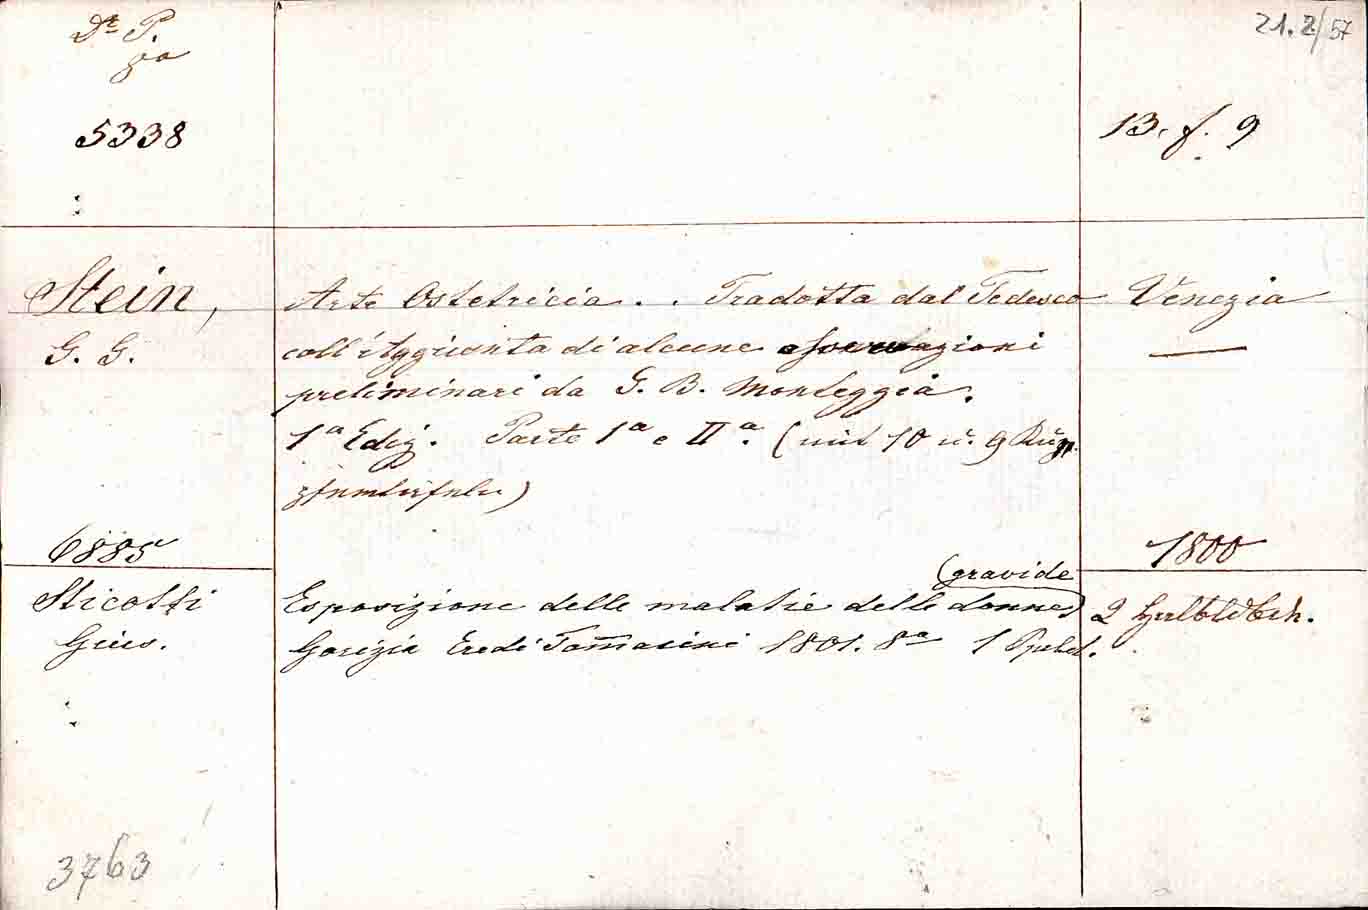 Dr P.
21.2/57
5338
13. f. 9
Stein,
G. G.
Arte Ostetricia . . Tradotta dal Tedesco
coll'Aggiunta di alcune
preliminari da G. B. Monteggia.
1a Ediz. Parte 1a e IIa. (mit 10 u. 9
Venezia
6885
1800
Sticotti
Gius.
(gravide
Esposizione delle malatie delle donne)
Gorizia Eredi Tommasini 1801. 8° 1
2
3763